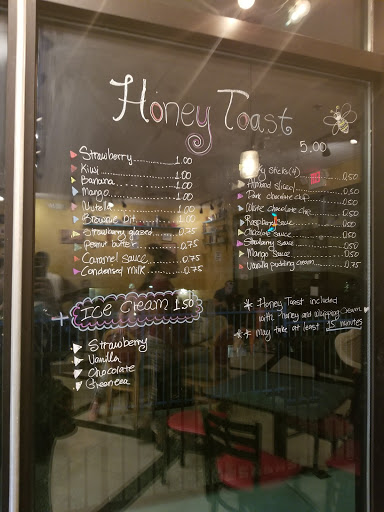 Honey Toast
5.00
Strawberry 1.00
Kiwi 1.00
Banana 1.00
Mango 1.00
Nutella 1.00
Brownie 1.00
Strawberry glazed 0.75
Peanut butter 0.75
Caramel Sauce 0.75
Condensed milk 0.75
Sticks (4) 0.50
Almond sliced 0.50
Dark chocolate chip 0.50
White chocolate chip 0.50
Raspberry Sauce 0.50
Chocolate sauce 0.50
Strawberry Sauce 0.50
Mango Sauce 0.50
Vanilla pudding cream 0.75
+ Ice Cream 1.50
Strawberry
Vanilla
Chocolate
* Honey Toast included
with honey and whipping cream
** may take at least 15 minutes